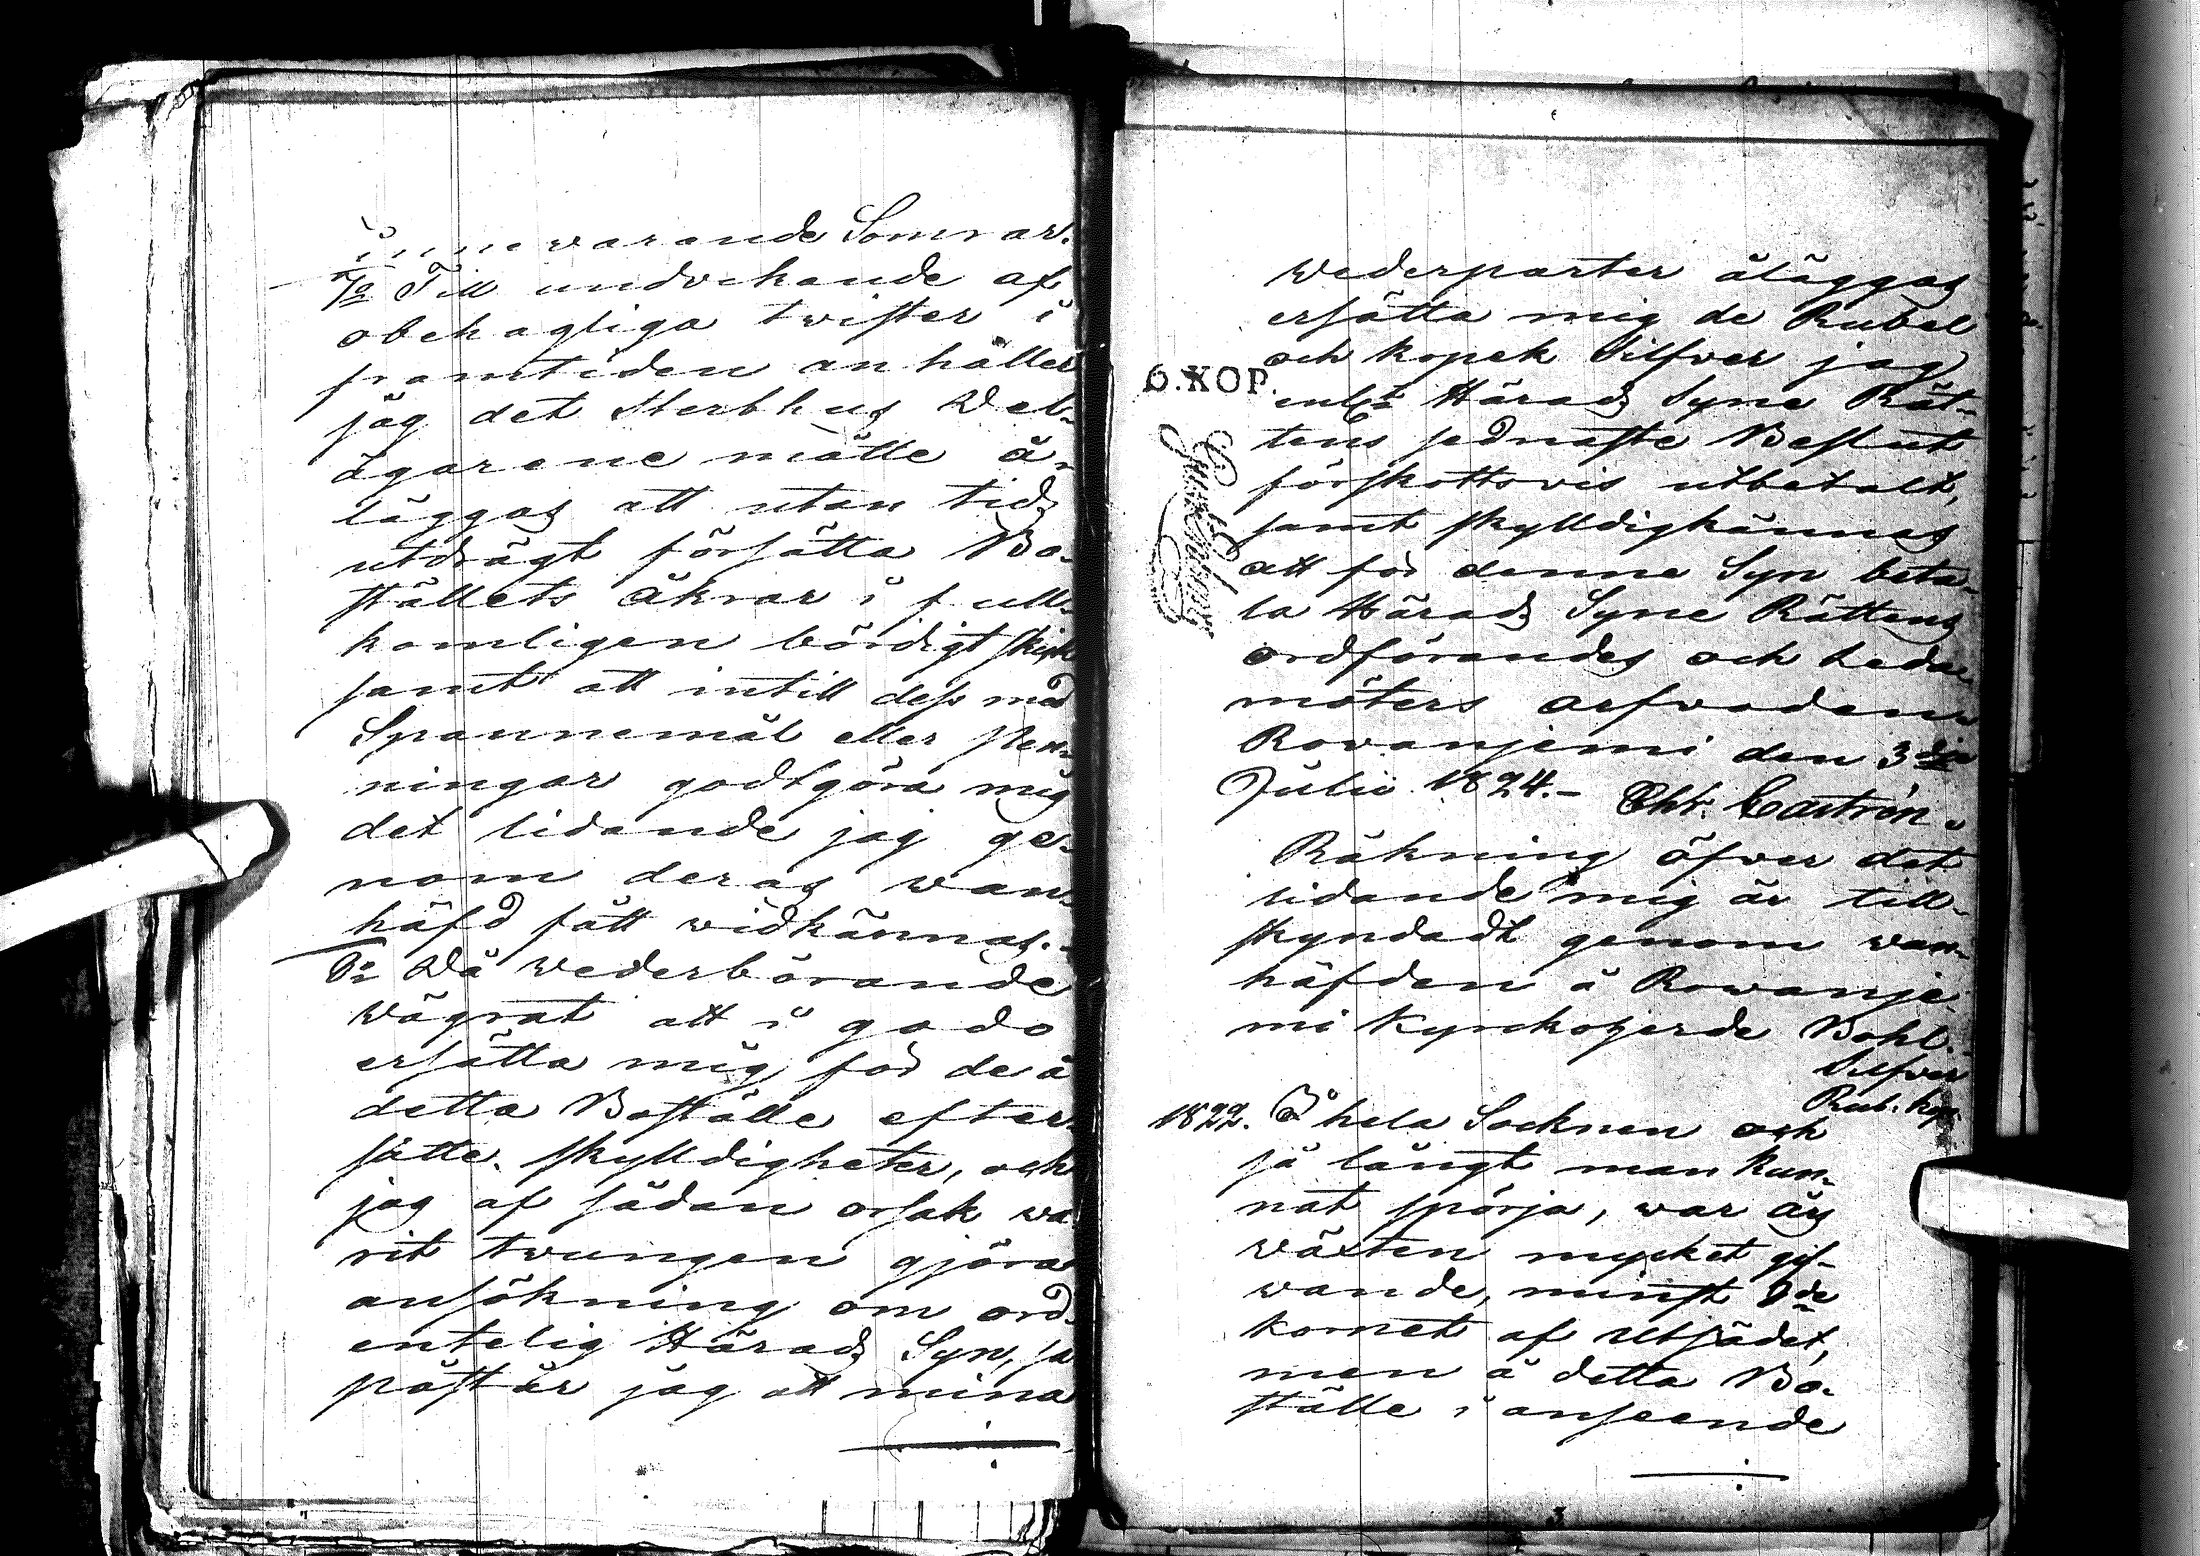 innewarande Sommar.
7/o Till undvekande af
obehagliga twister i
framtiden anhåller
jag det Sterbhus Del-
ägarene måtte å-
läggas att utan tids
utdrägt försätta Bo-
ställets åkrar i full-
komligen bördigt skick
samt att intill dess med
Spannemål eller pen-
ningar godtgöra mig
det lidande jag ge-
nom deras wan-
häfd fått widkännas.
8o Då wederbörande
wägrat att i godo
ersätta mig för de å
detta Boställe efter-
satte skylldigheter, och
jag af sådan orsak wa
rit twungen gjöra
ansökning om ord-
entelig Härads Syn, så
påstår jag att mina
wederparter åläggas
ersätta mig de Rubel
och kopek Silfver jag
6.KOP.
enl:t Härads Syne Rät-
tens sednaste Beslut
förskottsvis utbetalt,
samt skylldigkännas
att för denne Syn beta-
la Härads Syne Rättens
ordförandes och Leda-
möters arfvoden
Rovanjemi den 3dje
Julii 1824.- Chr. Castrén.
Räkning öfver det
lidande mig är till-
skyndadt genom wan-
häfden å Rowanje-
mi Kyrkoherde Bohl.
Silfver
Rub. kop.
1822. I hela Socknen och
så långt man kun-
nat spörja, war års
wäxten mycket gif-
wande, minst 8de
kornet af Utsädet,
men å detta Bo-
ställe i anseende